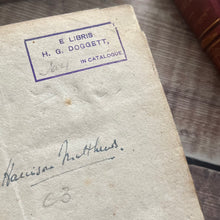 E LIBRIS
H. G. DOGGETT,
IN CATALOGUE
Harrison Matthews.